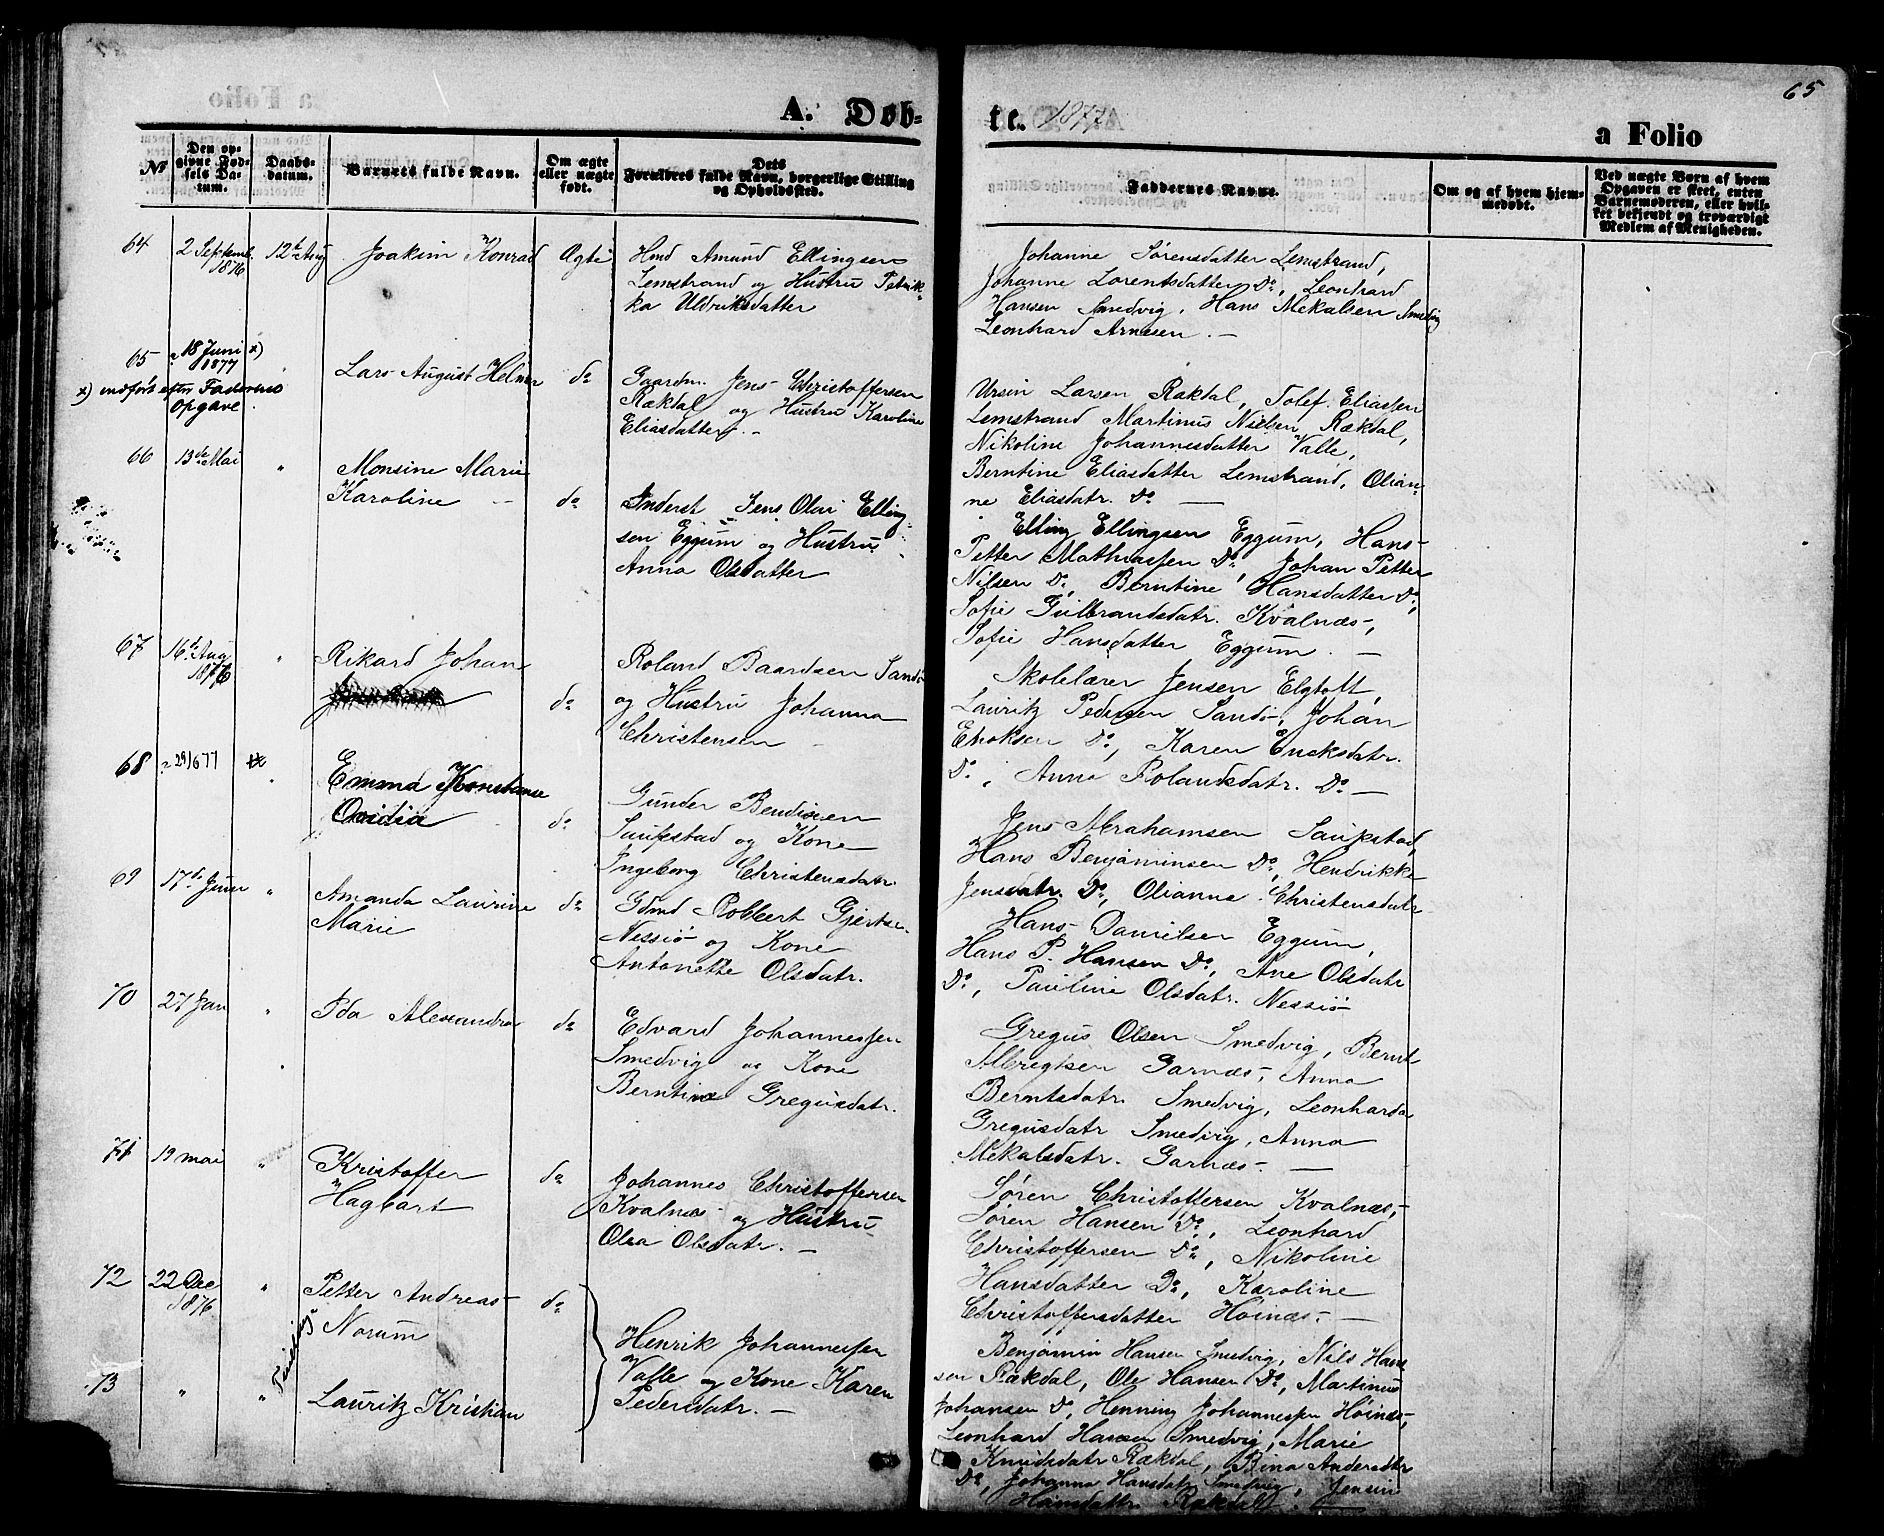 65
a Folio
A. Døb-
te. 1877
a Folio
No
Den op-
givne Fød-
sels Da-
tum.
Daabs-
datum.
Barnets fulde Navn.
Om ægte
eller uægte
født.
Dets
Forældres fulde Navn, borgerlige Stilling
og Opholdssted.
Faddernes Navne.
Om og af hvem hjem-
medøbt.
Ved uægte Børn af hvem
Opgaven er skeet, enten
Barnemoderen, eller hvil-
ket bekjendt og troværdigt
Medlem af Menigheden.
64
2 Septemb.
1876
12te Aug
Joakim Konrad
Ægte
Hmd Amund Ellingsen
Lemstrand og Hustru Petrik-
ka Uldriksdatter
Johanne Sørensdatter Lemstrand,
Johanne Lorentsdatter Do, Leonhard
Hansen Smedvig, Hans Mekalsen Smedvig
Leonhard Arnesen. —
65
18 Juni x)
1877
x) indført efter Faderens
Opgave.
Lars August Helmer
do
Gaardm. Jens Christoffersen
Rækdal og Hustru Karoline
Eliasdatter. —
Ursin Larsen Rækdal, Tolef Eliassen
Lemstrand Martinus Nielsen Rækdal,
Nikoline Johannesdatter Valle,
Berntine Eliasdatter Lemstrand, Olian-
ne Eliasdatr. Do —
66
13de Mai
"
Monsine Marie
Karoline —
do
Inderst Jens Olai Elling-
sen Eggum og Hustru
Anna Olsdatter
Elling Ellingsen Eggum, Hans
Petter Mathiassen Do, Johan Petter
Nilsen Do, Berntine Hansdatter Do,
Sofie Gulbrandsdatr. Kvalnæs,
Sofie Hansdatter Eggum. —
67
16de Aug
1876
"
Rikard Johan
do
Roland Baardsen Sandø
og Hustru Johanna
Christensen —
Skolelærer Jensen Elgtoft,
Lauritz Pedersen Sandø, Johan
Enoksen Do, Karen Enoksdatr.
Do, Anna Rolandsdatr. Do —
68
29/6 77
"
Emma Konstanse
Ovidia
do
Gunder Bendixen
Saupstad og Kone
Ingeborg Christensdatr.
Jens Abrahamsen Saupstad,
Hans Benjaminsen Do, Hendrikke
Jensdatr. Do, Olianna Christensdatr
69
17de Juni
"
Amanda Laurine
Marie
do
Gdmd Robbert Gjertsen
Nessiø og Kone
Antonette Olsdatr.
Hans Danielsen Eggum,
Hans P. Hansen Do, Ane Olsdatr
Do, Pauline Olsdatr. Nessiø
70
27 Jan
"
Ida Alexandra
do
Edvard Johannessen
Smedvig og Kone
Berntine Gregusdatr.
Gregus Olsen Smedvig, Bernt
Albregtsen Garnæs, Anna
Berntsdatr. Smedvig, Leonharda
Gregusdatr Smedvig, Anna
Mekalsdatr. Garnæs. —
71
19 mai
"
Kristoffer
Hagbart
do
Johannes Christoffersen
Kvalnæs og Hustru
Olea Olsdatr. —
Søren Christoffersen Kvalnæs,
Søren Hansen Do, Leonhard
Christoffersen Do, Nikoline
Hansdatter Do, Karoline
Christoffersdatter Høinæs. —
72
22 Dec
1876
"
Petter Andreas
Norum
do
Tvilling
Henrik Johannessen
Valle og Kone Karen
Pedersdatr. —
73
"
"
Lauritz Kristian
Benjamin Hansen Smedvig, Nils Han-
sen Rækdal, Ole Hansen Do, Martinus
Johansen Do, Henning Johannessen Høinæs,
Leonhard Hansen Smedvig, Marie
Knudsdatr Rækdal, Bina Andersdtr
Do, Johanna Hansdatr Smedvig, Jensine
Hansdatr. Rækdal. —